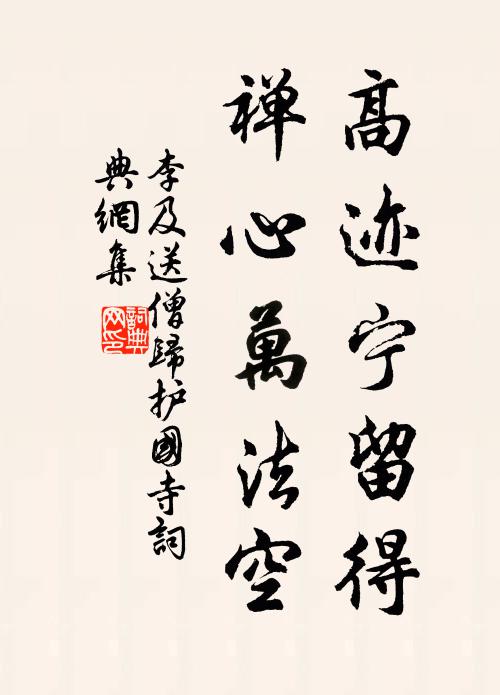 高迹宁留得
禅心萬法空
李及送僧歸护國寺詞
典網集
詞典网印